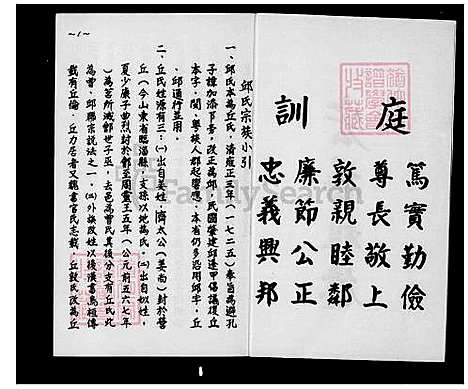 庭訓
篤實勤儉
尊長敬上
敦親睦鄰
廉節公正
忠義興邦
邱氏宗族小引
一、邱氏本為丘氏，清雍正三年（一七二五）奉旨為避孔
子諱加添「阝」旁，改正為邱，民國肇建邱逢甲倡議復丘
本字，閩、粵族人群起響應，本省仍多沿用邱字，丘
、邱通行並用。
二、丘氏姓源有三：㈠出自姜姓，齊太公（姜尚）封於營
丘（今山東省臨淄縣）支孫以地為氏，㈡出自姒姓，
夏少康子曲烈封於鄫至周靈王五年（公元前五六七年
）為莒所滅鄫世子巫，去邑為曾氏其後分支有丘氏此
為曾、邱聯宗說法之一，㈢外族改姓以後漢書烏桓傳
載有丘倫，丘力居者又魏書官氏志載，丘敦氏改為丘
~1~
FamilySearch